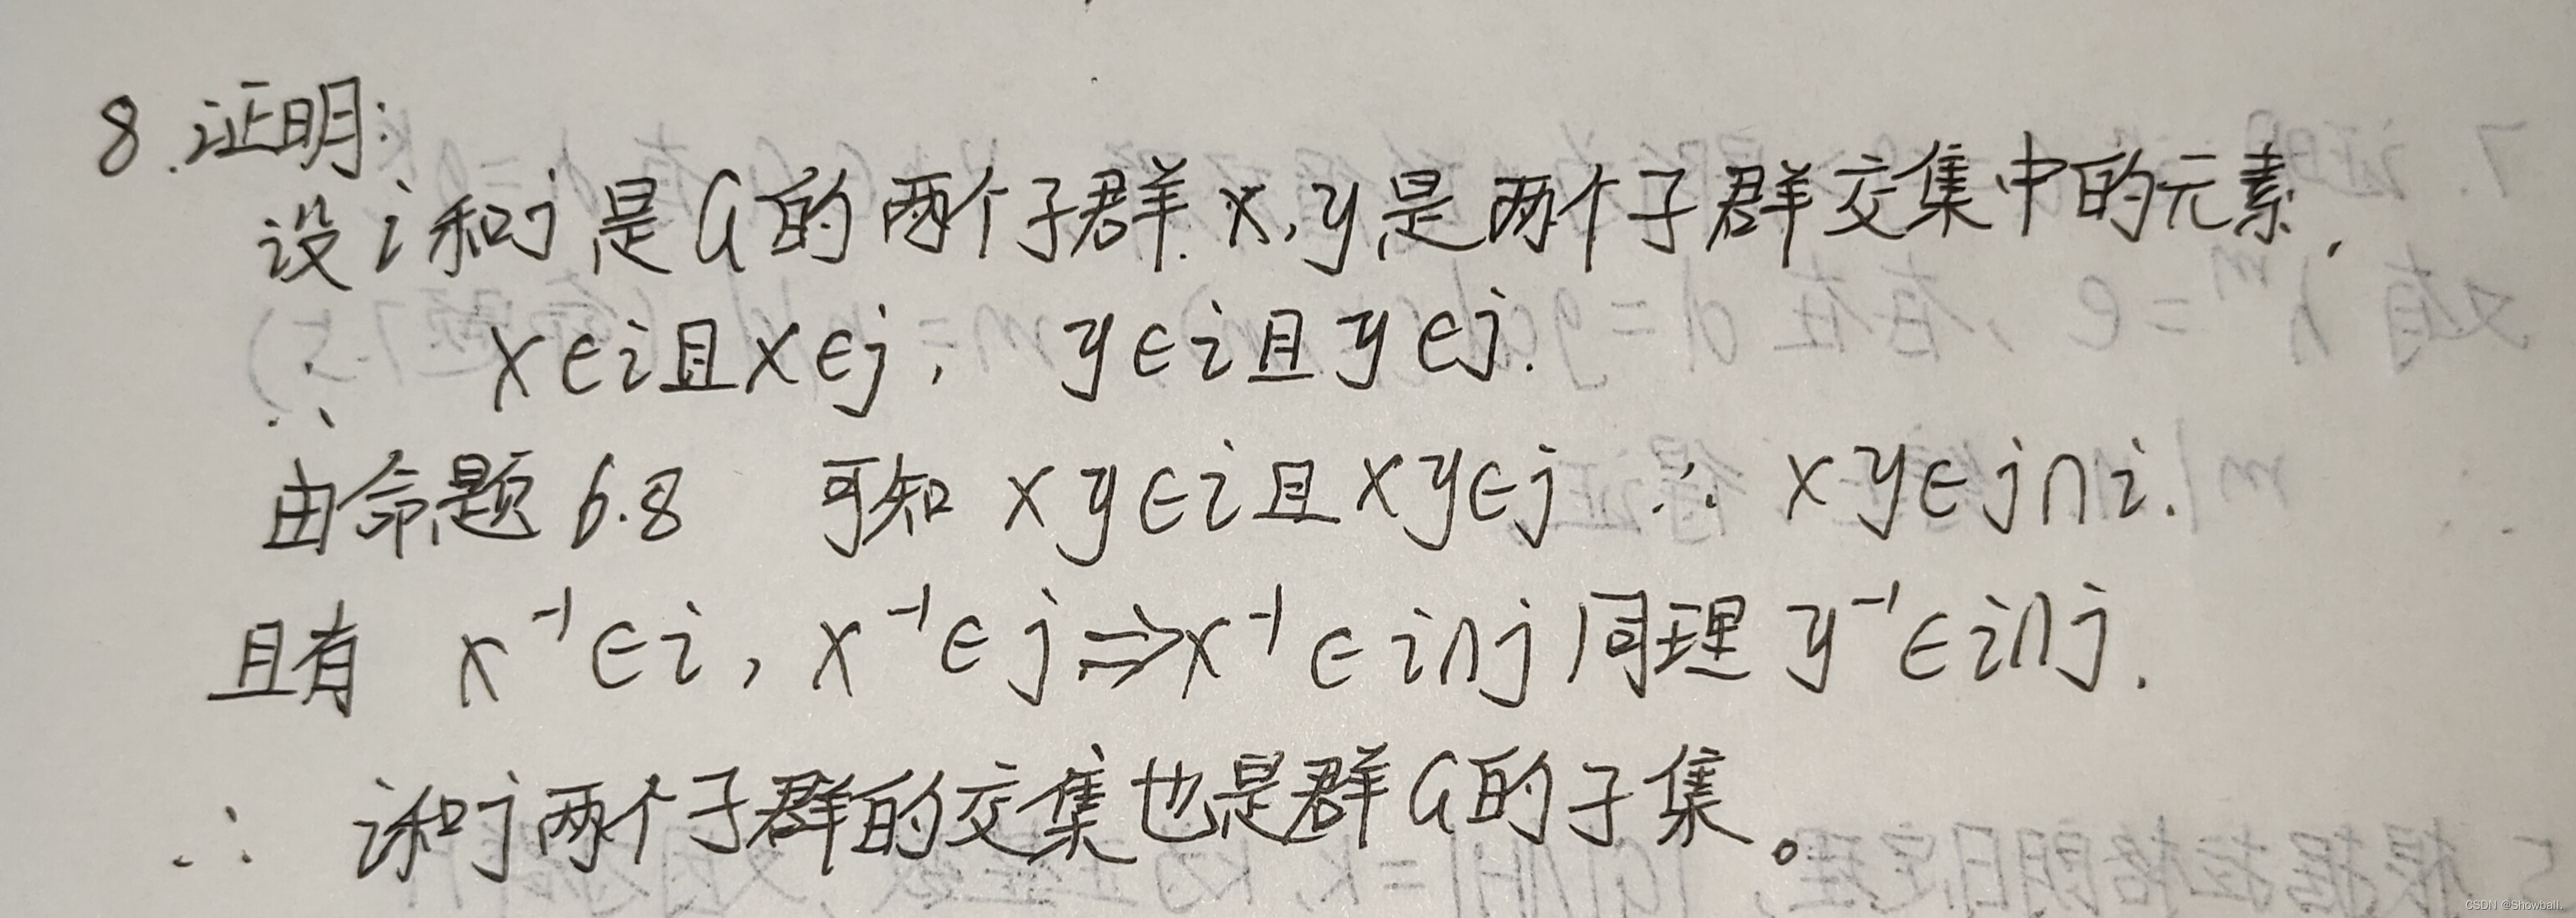 8.证明:
设i和j是G的两个子群.x,y是两个子群交集中的元素,
∴ x∈i且x∈j, y∈i且y∈j.
由命题6.8 可知 xy∈i且xy∈j ∴ xy∈j∩i.
且有 x⁻¹∈i, x⁻¹∈j⇒x⁻¹∈i∩j同理 y⁻¹∈i∩j.
∴ i和j两个子群的交集也是群G的子集。
CSDN @Showball.